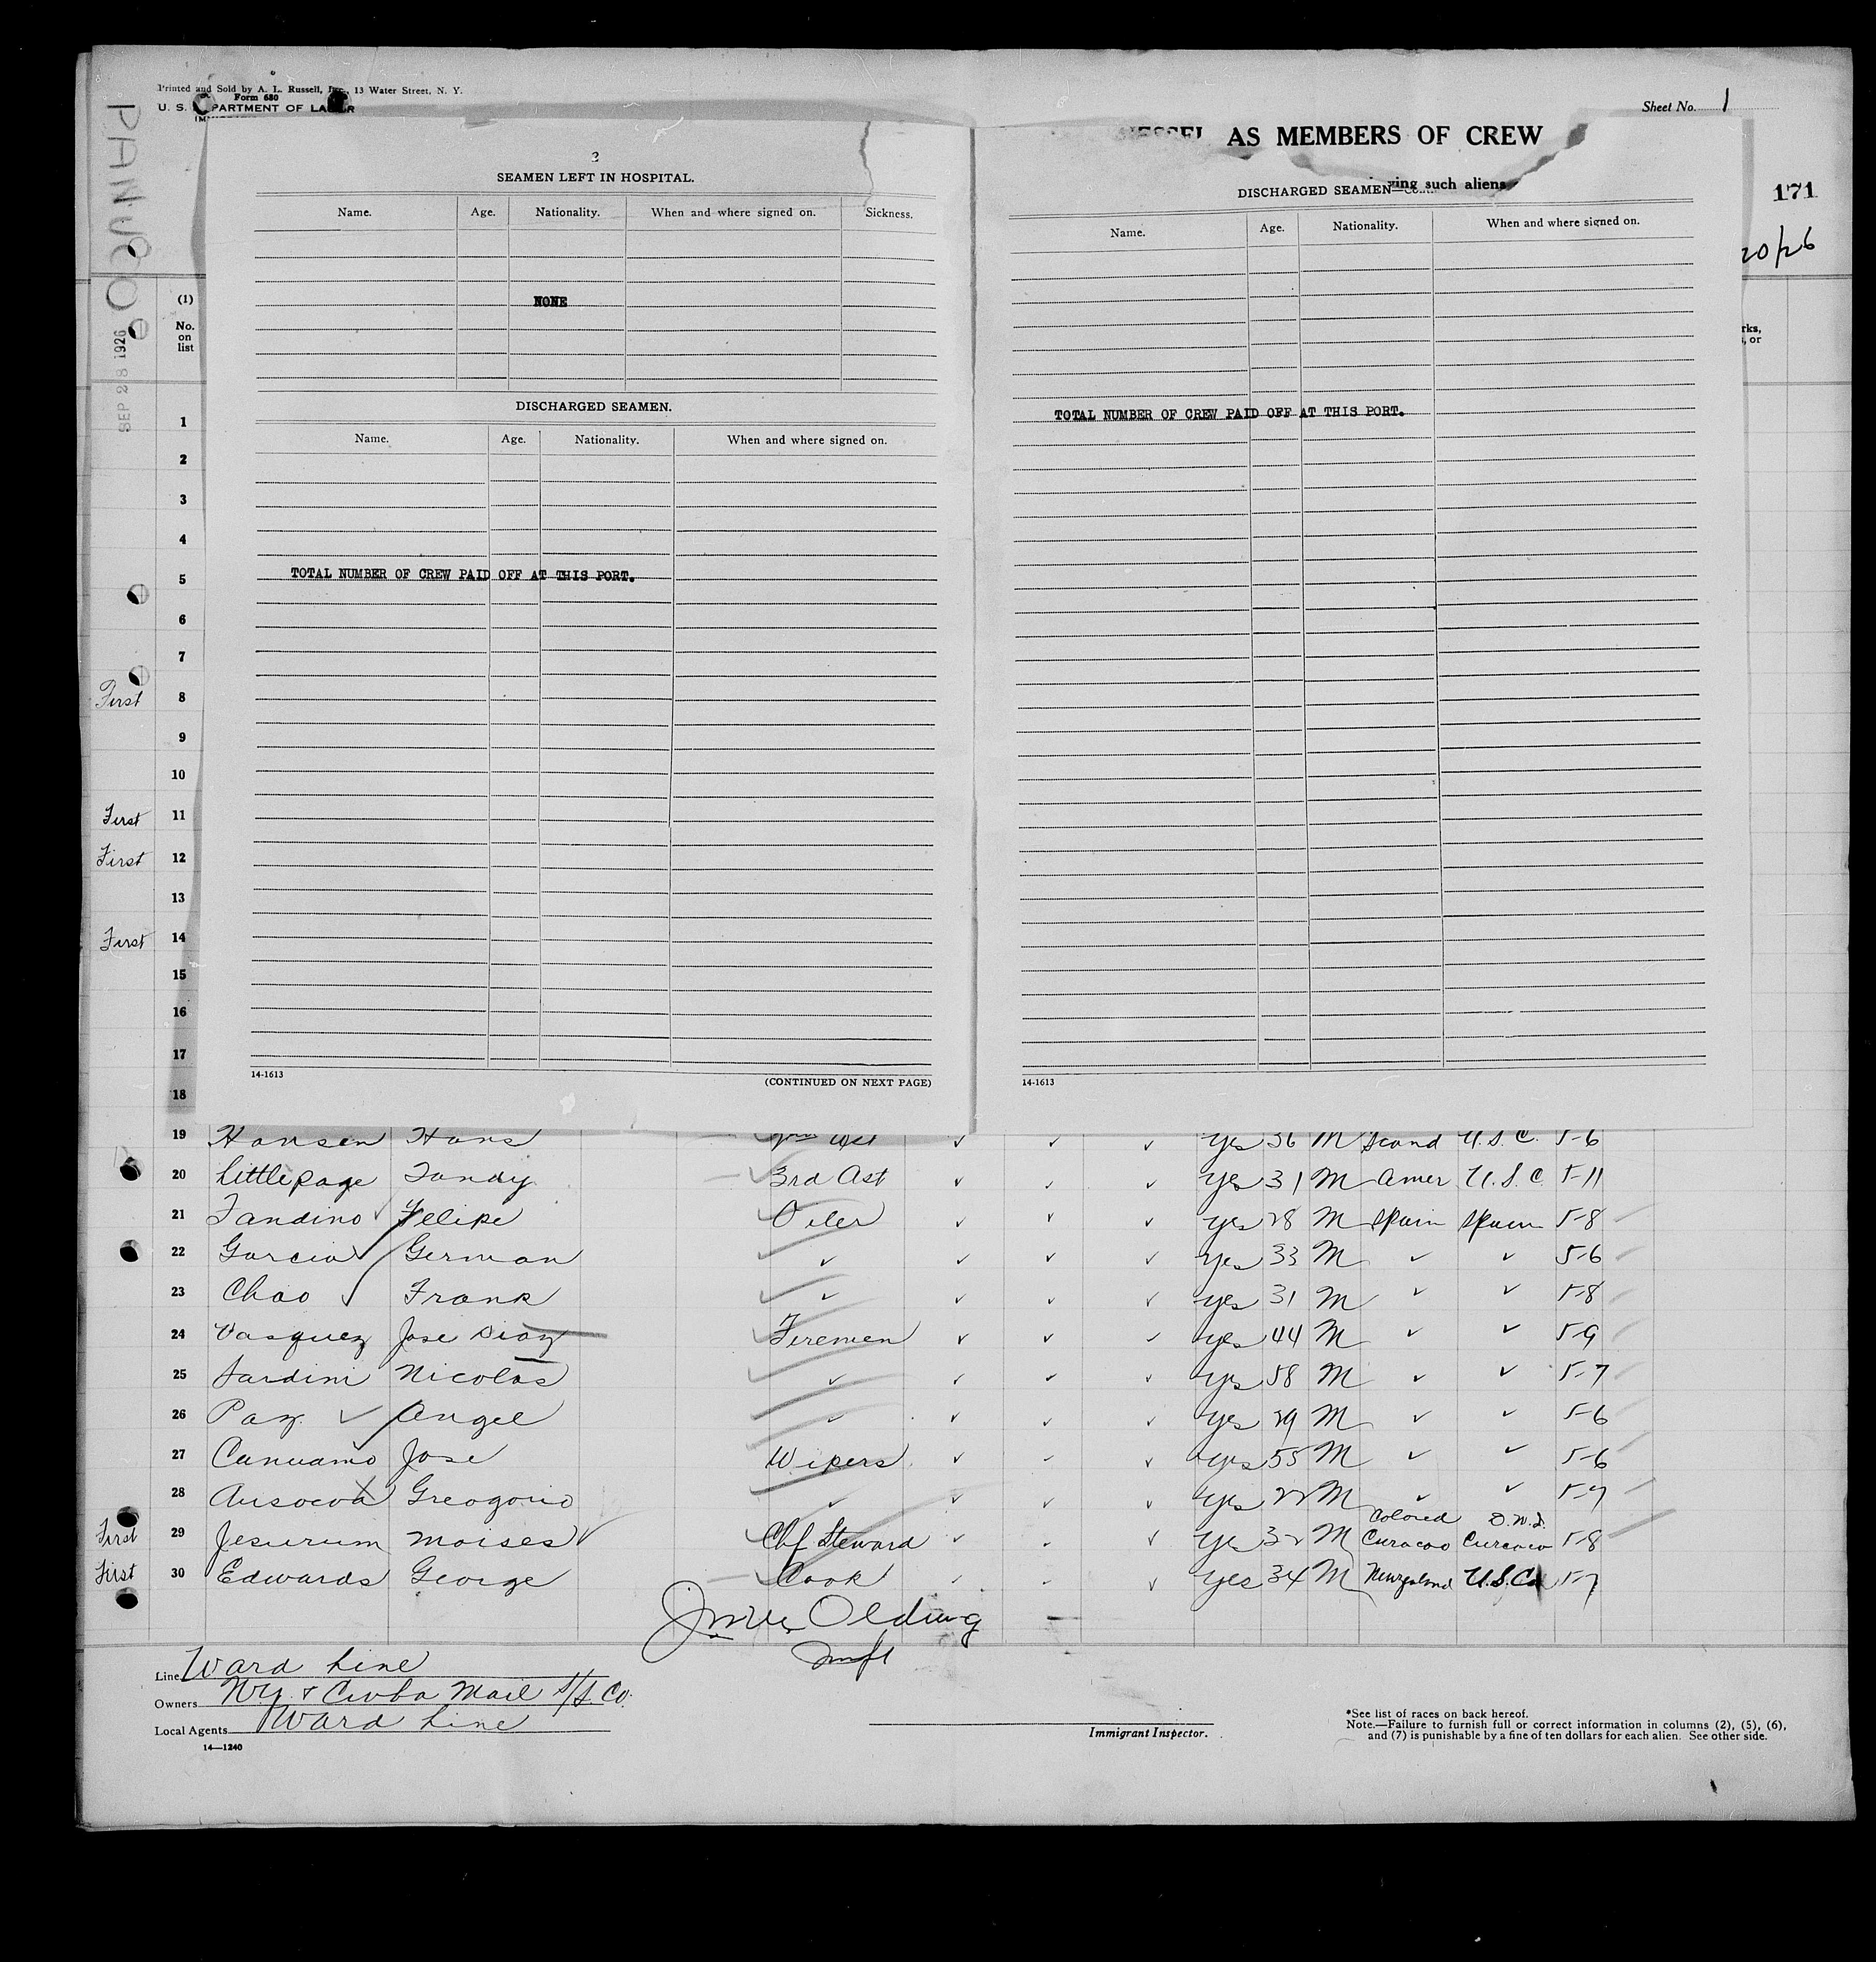 Printed and Sold by A. L. Russell, Inc., 13 Water Street, N. Y.
Form 680
U. S. DEPARTMENT OF LABOR
Sheet No. 1
AS MEMBERS OF CREW
such aliens
171
20/26
PANUCO
SEP 28 1926
(1)
No.
on
list
rks,
, or
3
SEAMEN LEFT IN HOSPITAL.
Name. Age. Nationality. When and where signed on. Sickness.
NONE
DISCHARGED SEAMEN.
Name. Age. Nationality. When and where signed on.
TOTAL NUMBER OF CREW PAID OFF AT THIS PORT.
14-1613 (CONTINUED ON NEXT PAGE)
DISCHARGED SEAMEN—
Name. Age. Nationality. When and where signed on.
TOTAL NUMBER OF CREW PAID OFF AT THIS PORT.
14-1613
1
2
3
4
5
6
7
First 8
9
10
First 11
First 12
13
First 14
15
16
17
18
19 Hansen Hans Ast ✓ ✓ ✓ Yes 36 M Scand U.S.C. 5-6
20 Littlepage Tandy 3rd Ast ✓ ✓ ✓ Yes 31 M Amer U.S.C. 5-11
21 Fandino Felipe Oiler ✓ ✓ ✓ Yes 28 M Spain Spain 5-8
22 Garcia German ✓ ✓ ✓ ✓ Yes 33 M ✓ ✓ 5-6
23 Chao Frank ✓ ✓ ✓ ✓ Yes 31 M ✓ ✓ 5-8
24 Vasquez Jose Diaz Firemen ✓ ✓ ✓ Yes 44 M ✓ ✓ 5-9
25 Sardini Nicolas ✓ ✓ ✓ ✓ Yes 58 M ✓ ✓ 5-7
26 Paz Angel ✓ ✓ ✓ ✓ Yes 29 M ✓ ✓ 5-6
27 Jose Wipers ✓ ✓ ✓ Yes 55 M ✓ ✓ 5-6
28 Greogorio ✓ ✓ ✓ ✓ Yes 22 M ✓ ✓ 5-7
Colored D.W.I.
First 29 Jesurum Moises Chf Steward ✓ ✓ ✓ Yes 32 M Curacao Curacao 5-8
First 30 Edwards George Cook ✓ ✓ ✓ Yes 34 M Newzealand 5-7
Olding
Line Ward Line
Owners NY & Cuba Mail S/S. Co.
Local Agents Ward Line
14—1240
Immigrant Inspector.
*See list of races on back hereof.
Note.—Failure to furnish full or correct information in columns (2), (5), (6),
and (7) is punishable by a fine of ten dollars for each alien. See other side.